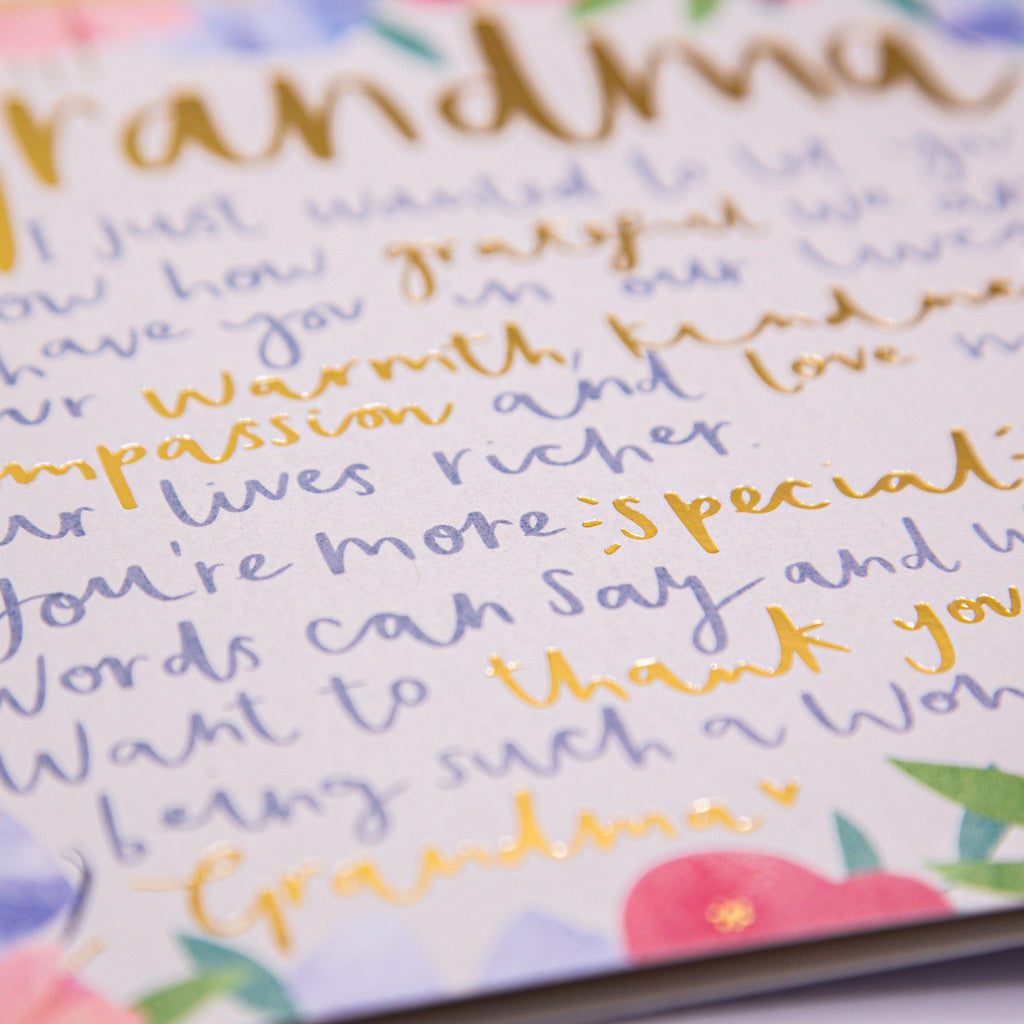 Grandma
I just wanted to let you
know how grateful we are
have you in our lives
our warmth, kindness
compassion and love
our lives richer.
You're more special
Words can say and
Want to thank you
being such a
Grandma